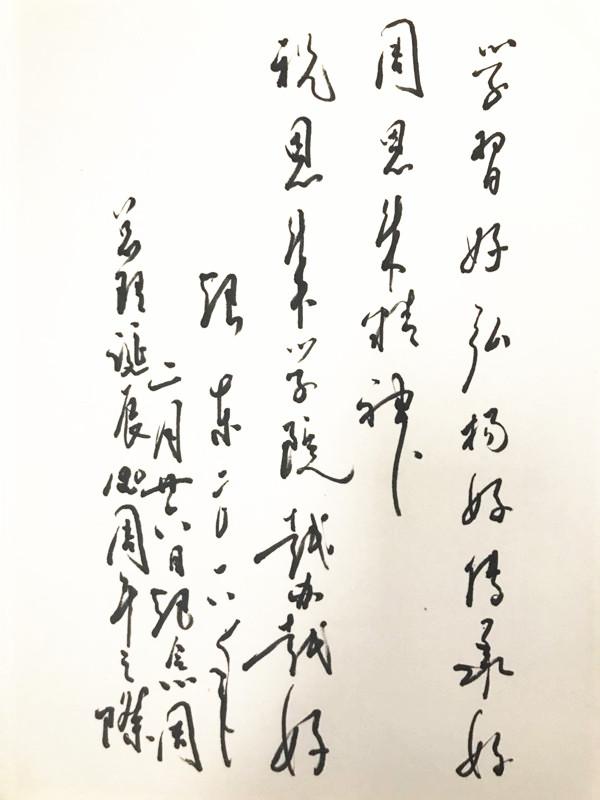 学習好弘扬好传承好
周恩来精神
祝恩来学院越办越好
纪东二〇一八年
二月廿八日纪念周
总理誕辰120周年之際